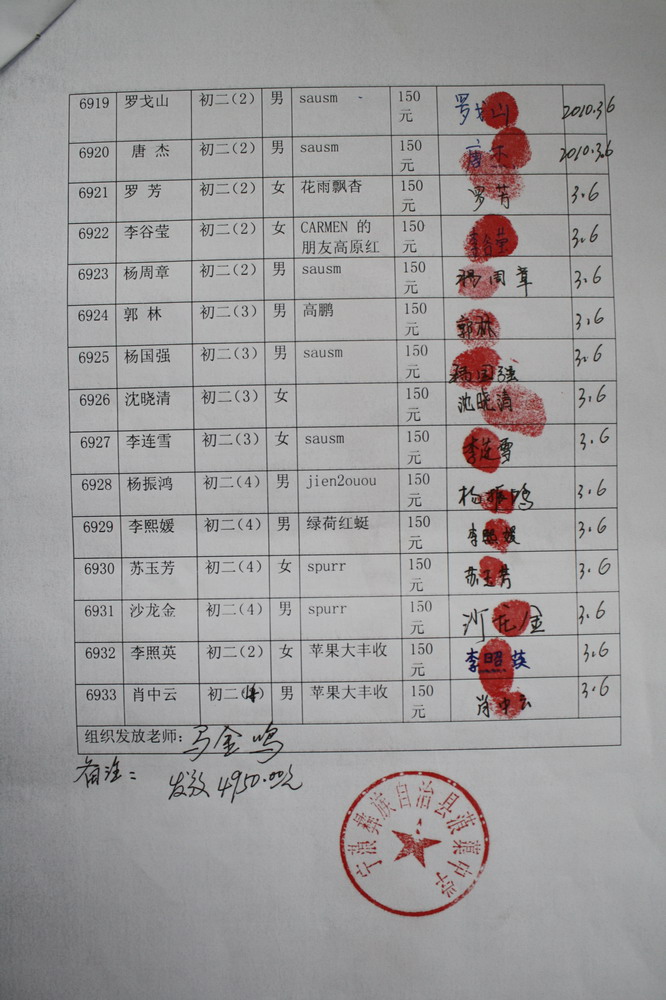 6919 罗戈山 初二(2) 男 sausm 150元 罗戈山 2010.3.6
6920 唐 杰 初二(2) 男 sausm 150元 唐杰 2010.3.6
6921 罗 芳 初二(2) 女 花雨飘香 150元 罗芳 3.6
6922 李谷莹 初二(2) 女 CARMEN 的朋友高原红 150元 李谷莹 3.6
6923 杨周章 初二(2) 男 sausm 150元 杨周章 3.6
6924 郭 林 初二(3) 男 高鹏 150元 郭林 3.6
6925 杨国强 初二(3) 男 sausm 150元 杨国强 3.6
6926 沈晓清 初二(3) 女 150元 沈晓清 3.6
6927 李连雪 初二(3) 女 sausm 150元 李连雪 3.6
6928 杨振鸿 初二(4) 男 jien2ouou 150元 杨振鸿 3.6
6929 李熙媛 初二(4) 男 绿荷红蜓 150元 李熙媛 3.6
6930 苏玉芳 初二(4) 女 spurr 150元 苏玉芳 3.6
6931 沙龙金 初二(4) 男 spurr 150元 沙龙金 3.6
6932 李照英 初二(2) 女 苹果大丰收 150元 李照英 3.6
6933 肖中云 初二(4) 男 苹果大丰收 150元 肖中云 3.6
组织发放老师: 马金鸣
备注: 发放4950.00元
宁蒗彝族自治县蒗蕖中学